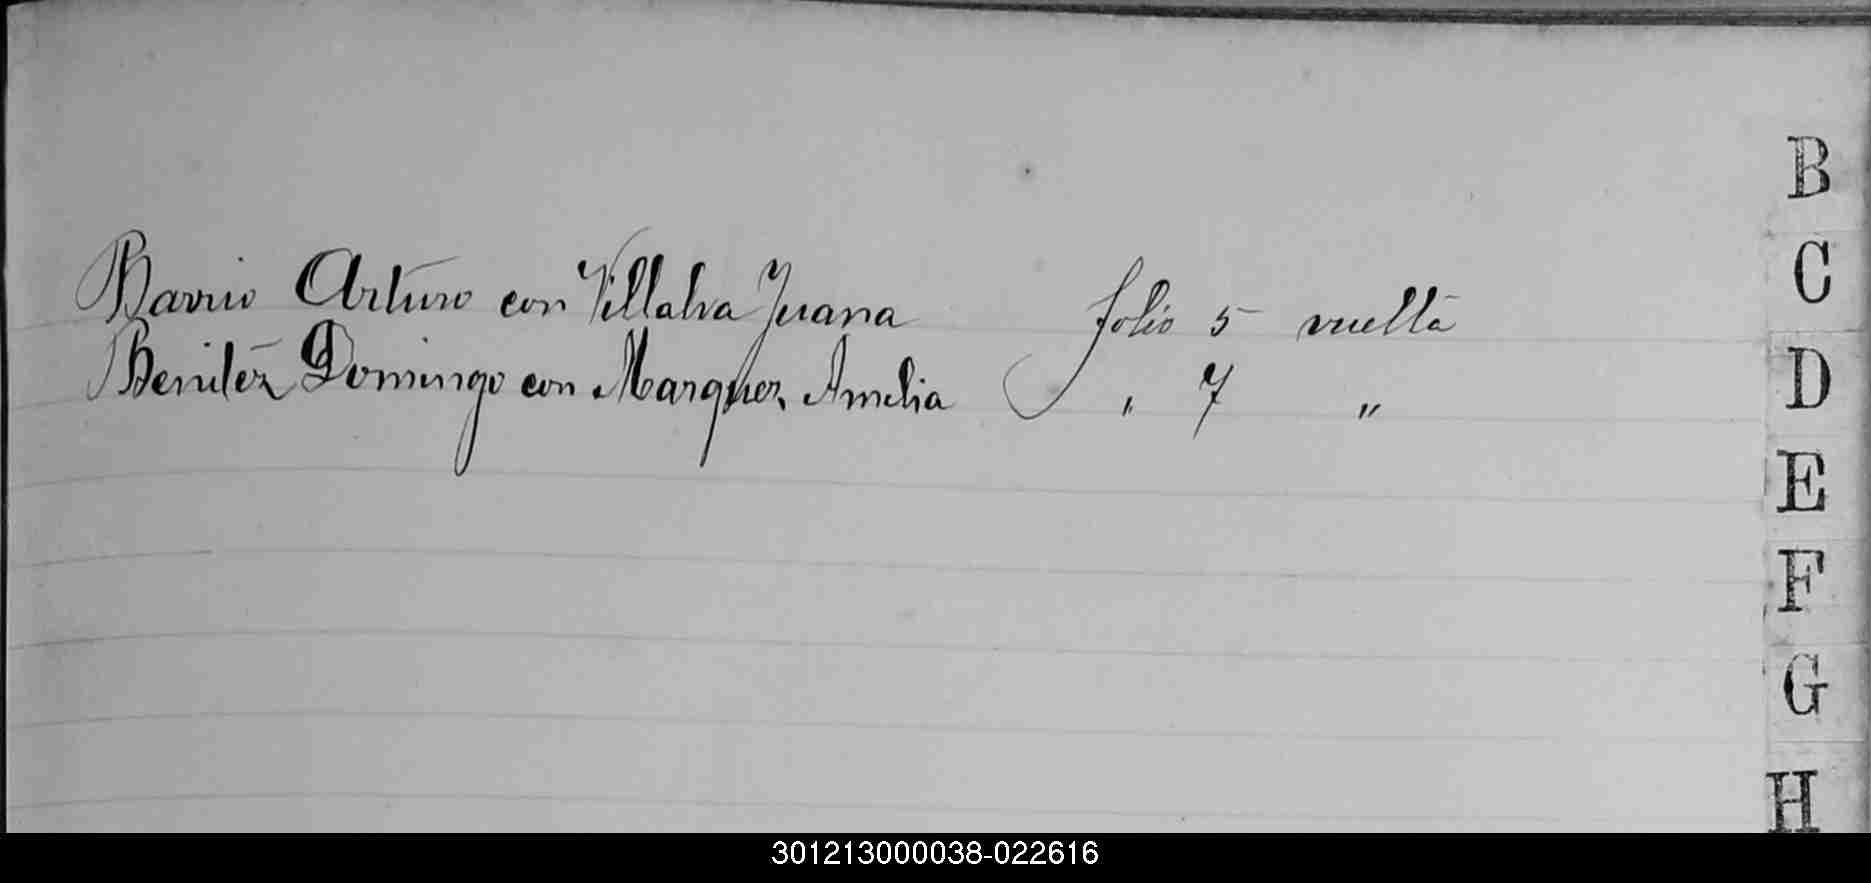 Barrio Arturo con Villalva Juana folio 5 vuelta
Benitez Domingo con Marquez, Amelia " 7 "
B
C
D
E
F
G
H
301213000038-022616